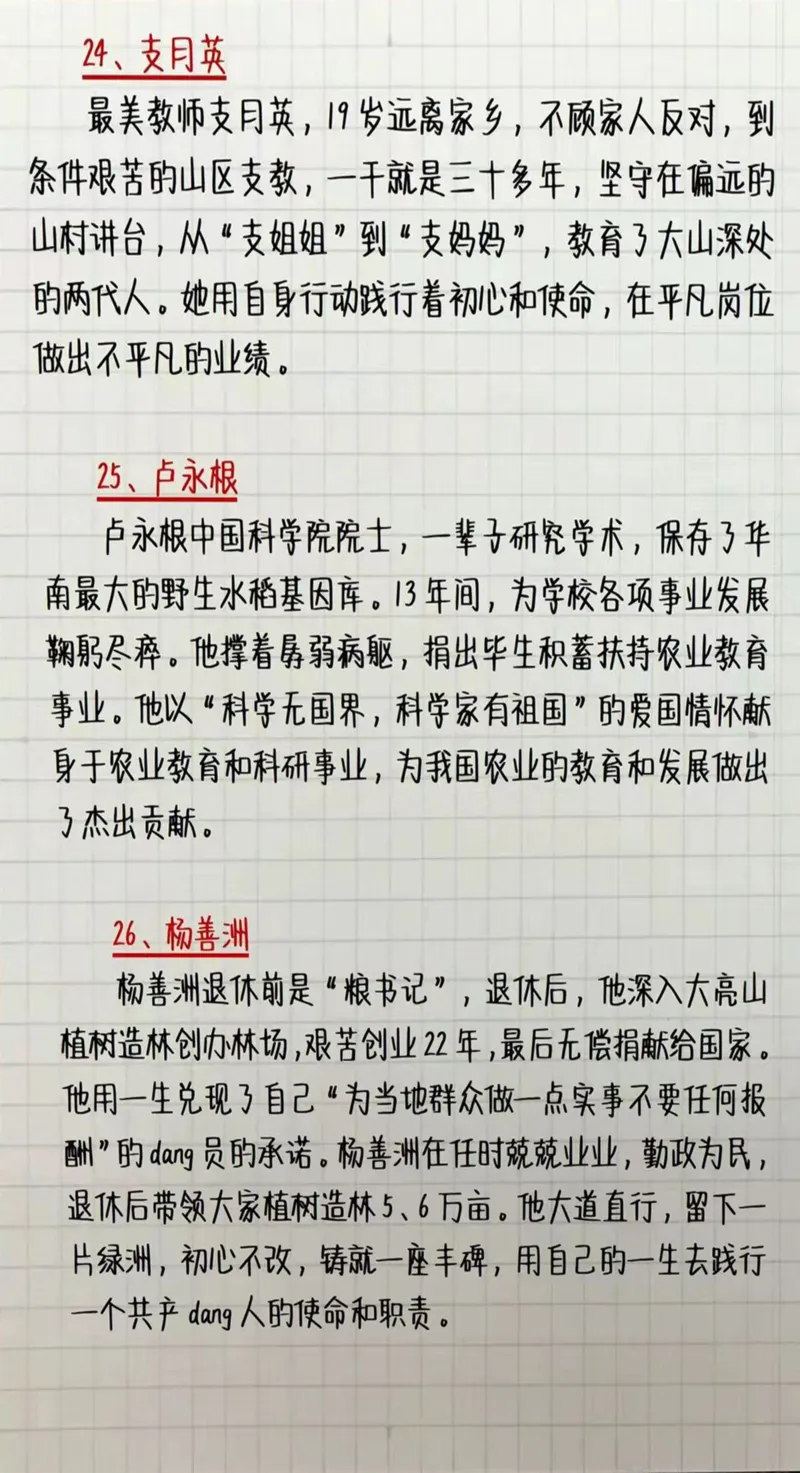 24、支月英
最美教师支月英，19岁远离家乡，不顾家人反对，到
条件艰苦的山区支教，一干就是三十多年，坚守在偏远的
山村讲台，从“支姐姐”到“支妈妈”，教育了大山深处
的两代人。她用自身行动践行着初心和使命，在平凡岗位
做出不平凡的业绩。
25、卢永根
卢永根中国科学院院士，一辈子研究学术，保存了华
南最大的野生水稻基因库。13年间，为学校各项事业发展
鞠躬尽瘁。他撑着孱弱病躯，捐出毕生积蓄扶持农业教育
事业。他以“科学无国界，科学家有祖国”的爱国情怀献
身于农业教育和科研事业，为我国农业的教育和发展做出
了杰出贡献。
26、杨善洲
杨善洲退休前是“粮书记”，退休后，他深入大亮山
植树造林创办林场,艰苦创业22年,最后无偿捐献给国家。
他用一生兑现了自己“为当地群众做一点实事不要任何报
酬”的dang员的承诺。杨善洲在任时兢兢业业，勤政为民，
退休后带领大家植树造林5、6万亩。他大道直行，留下一
片绿洲，初心不改，铸就一座丰碑，用自己的一生去践行
一个共产dang人的使命和职责。